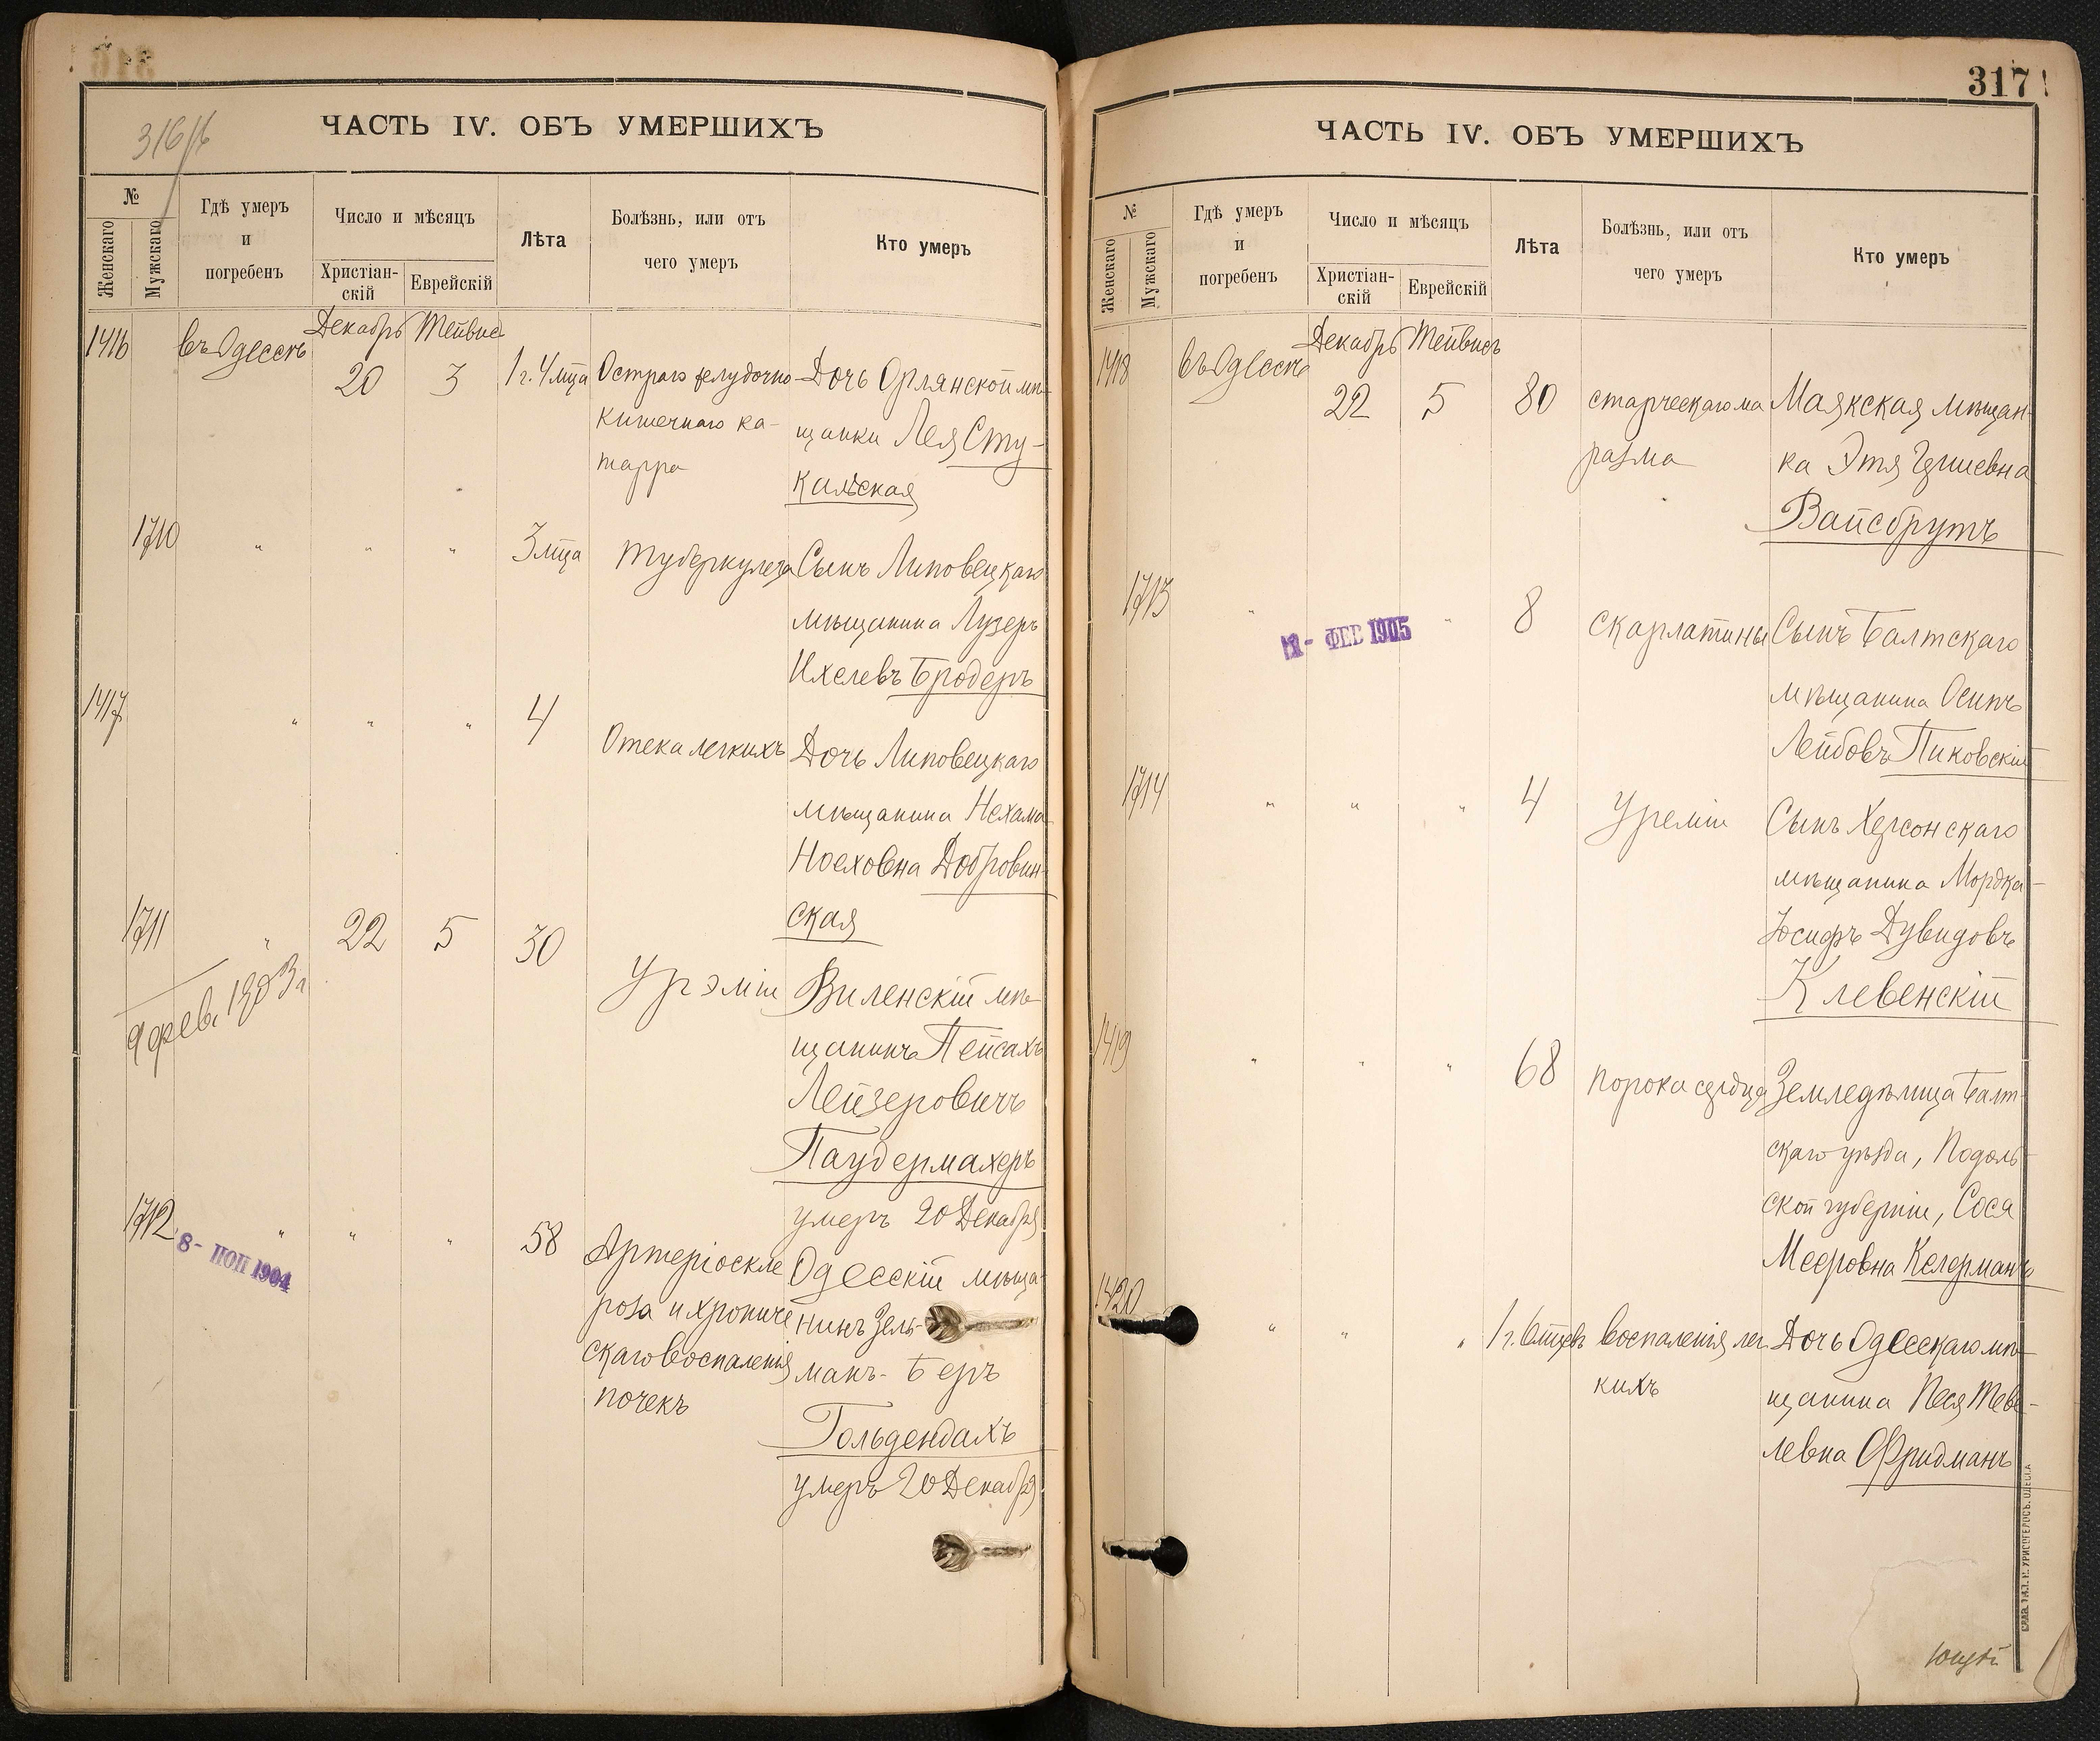 316/б
ЧАСТЬ IV. ОБЪ УМЕРШИХЪ
№
Женскаго
Мужскаго
Гдѣ умеръ
и
погребенъ
Число и мѣсяцъ
Христіан-
скій
Еврейскій
Лѣта
Болѣзнь, или отъ
чего умеръ
Кто умеръ
1416 въ Одессѣ Декабрь 20 Тейвис 3 1 г. 4 мца Остраго желудочно Дочь Орлянской мѣ-
кишечнаго ка- щанки Лея Сту-
тарра кальская
1710 " " " 3 мца туберкулеза Сынъ Липовецкаго
мѣщанина Лузеръ
Ихелевъ Бродеръ
1417 " " " 4 Отека легкихъ Дочь Липовецкаго
мѣщанина Нехама
Ноеховна Добровин-
ская
1711 " 22 5 30 Урэміи Виленскій мѣ-
9 фев. 1903 г. щанинъ Пейсахъ
Лейзеровичъ
Паудермахеръ
умеръ 20 Декабря
1712 " " " 58 Артеріоскле Одесскій мѣща-
8 - НОЯ 1904
роза и хрониче нинъ Зель-
скаго воспаленія манъ-Беръ
почекъ Гольдендахъ
умеръ 20 Декабря
317
ЧАСТЬ IV. ОБЪ УМЕРШИХЪ
№
Женскаго
Мужскаго
Гдѣ умеръ
и
погребенъ
Число и мѣсяцъ
Христіан-
скій
Еврейскій
Лѣта
Болѣзнь, или отъ
чего умеръ
Кто умеръ
1418 въ Одессѣ Декабрь 22 Тейвисъ 5 80 старческаго ма Маякская мѣщан-
разма ка Этя
Вайсбрутъ
1713 " " 8 скарлатины Сынъ Балтскаго
ФЕВ 1905
мѣщанина Осипъ
Лейбовъ Пиковскій
1714 " " " 4 Уреміи Сынъ Херсонскаго
мѣщанина Мордка-
Іосифъ Дувидовъ
Клевенскій
1419 " " " 68 порока сердца Земледѣлица Балт-
скаго уѣзда, Подоль-
ской губерніи, Сося
Мееровна Келерманъ
1420 " " " 1 г. воспаленія лег Дочь Одесскаго мѣ-
кихъ щанина Песя Теве-
левна Фридманъ